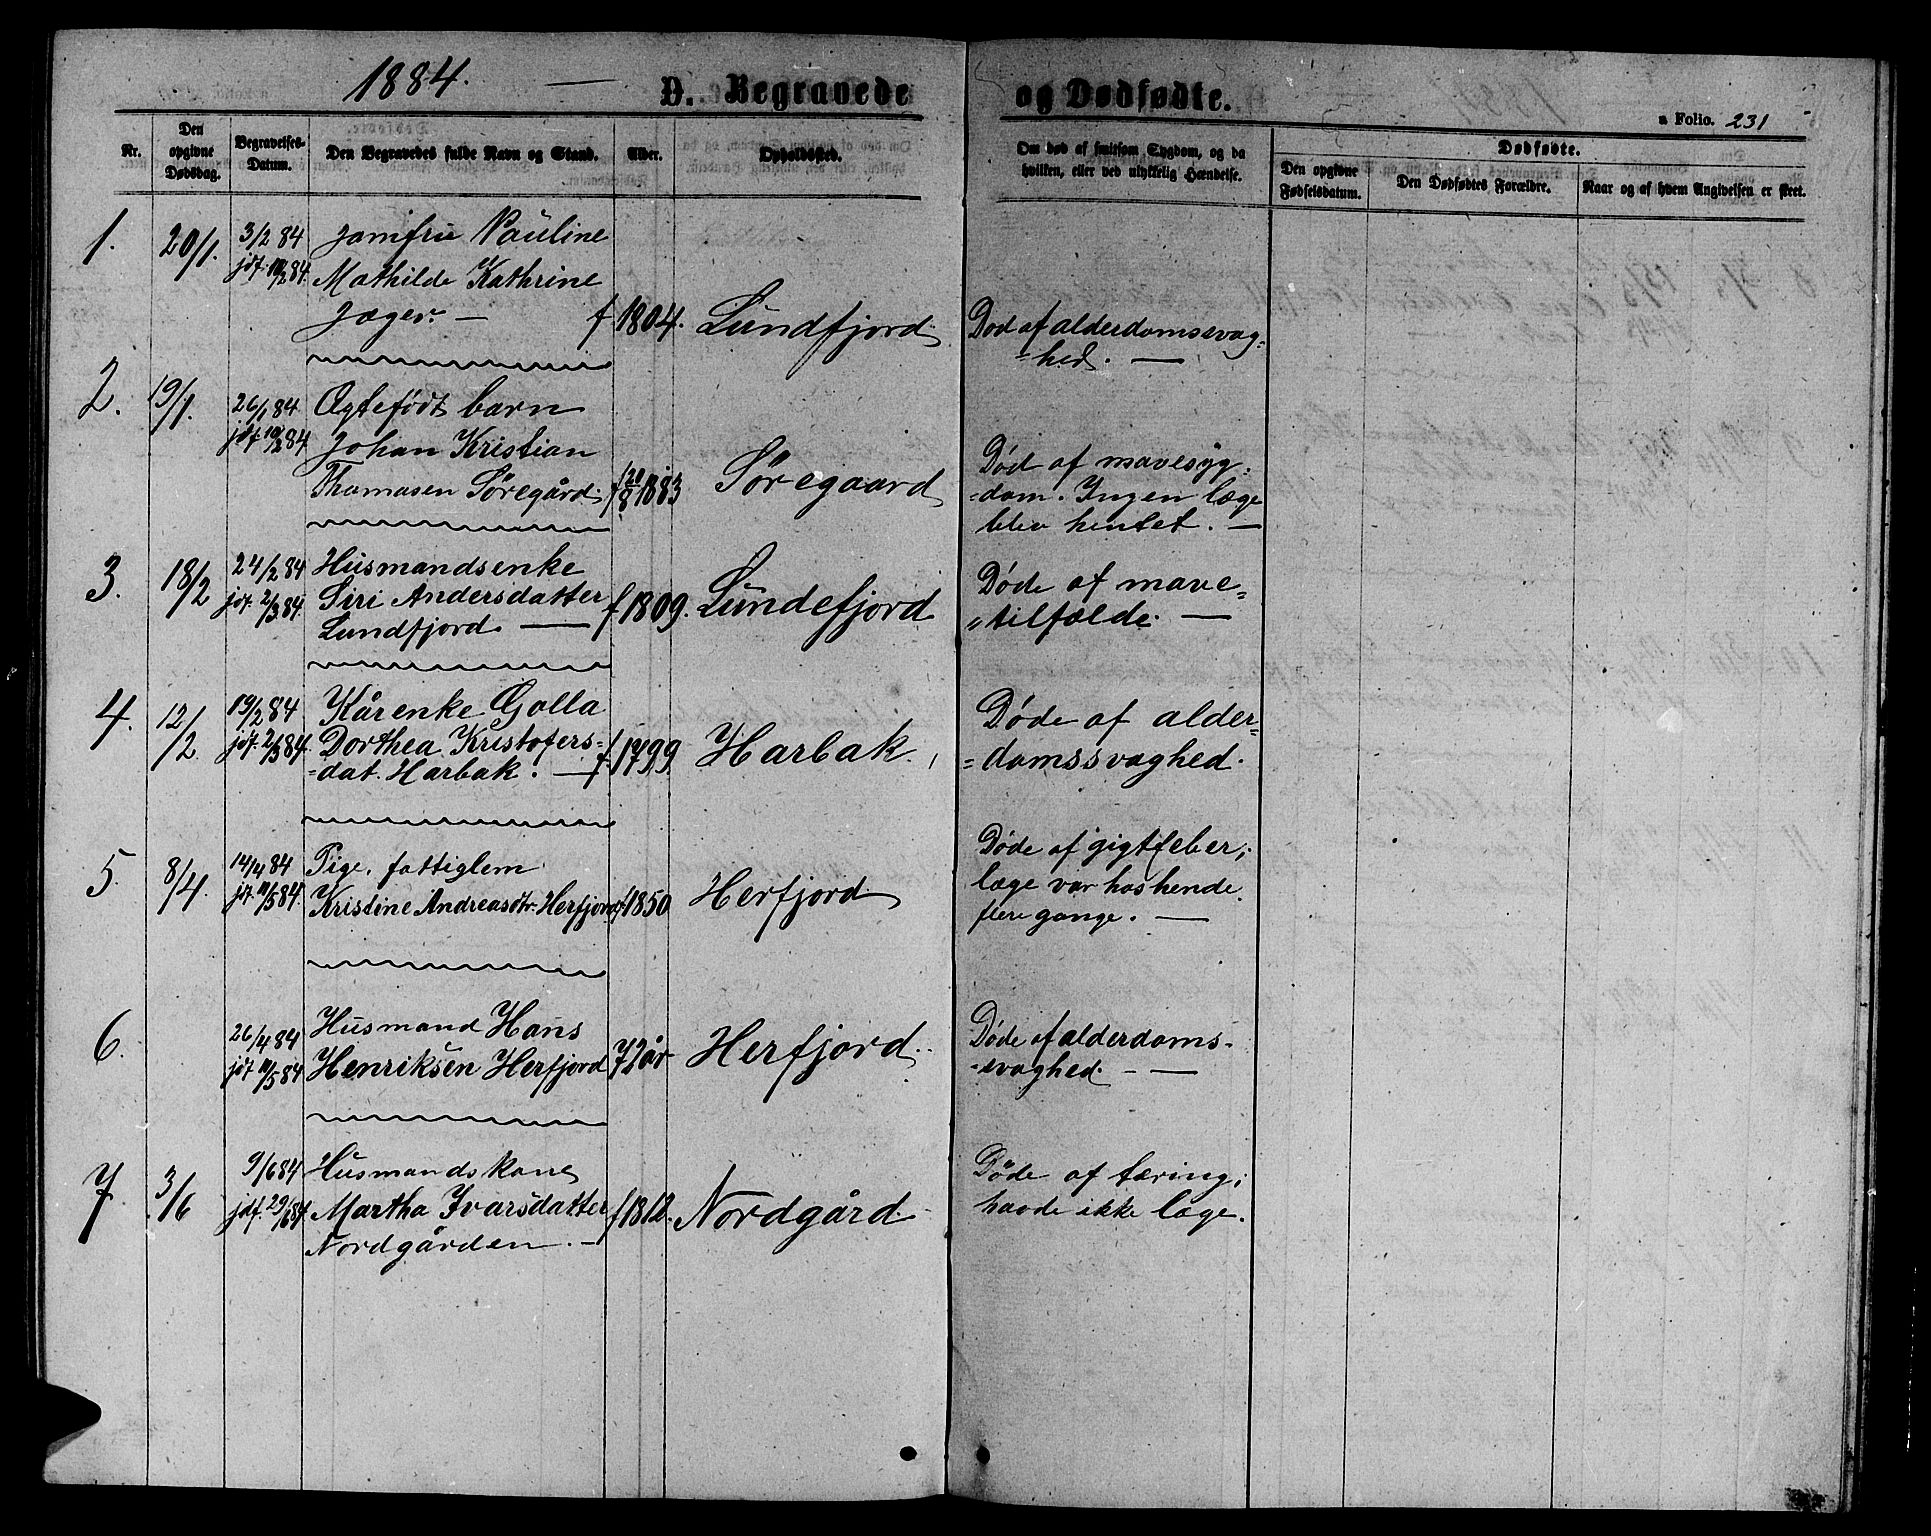 1884. — D. Begravede og Dødfødte.
a Folio. 231
Nr. Den opgivne Dødsdag. Begravelses-Datum. Den Begravedes fulde Navn og Stand. Alder. Opholdssted. Om død af smitsom Sygdom, og da hvilken, eller ved ulykkelig Hændelse. Dødfødte.
Den opgivne Fødselsdatum. Den Dødfødtes Forældre. Naar og af hvem Angivelsen er skeet.
1. 20/1. 3/2 84 Jomfru Pauline
jdf. 10/2 84. Mathilde Kathrine
Jæger. — f 1804. Lundfjord. Død af alderdomssvag=
=hed. —
2. 19/1. 26/1 84 Ægtefødt barn
jdf 10/2 84 Johan Kristian
Thomasen Søregård. f 20/8 1883 Søregaard Død af mavesyg=
=dom. Ingen læge
blev hentet. —
3. 18/2 24/2 84 Husmandsenke
jdf. 2/3 84. Siri Andersdatter f 1809. Lundefjord Døde af mave=
Lundfjord. — "tilfælde. —
4. 12/2 19/2 84 Kårenke Golla
jdf. 2/3 84. Dorthea Kristofers=
=dat. Harbak. — f. 1799 Harbak. Døde af alder=
=domssvaghed.
5. 8/4. 14/4 84 Pige, fattiglem
jdf. 11/5 84. Kristine Andreasdtr. Herfjord f 1850 Herfjord. Døde af gigtfeber;
læge var hos hende
flere gange. —
6. 26/4 84 Husmand Hans
jdf 11/5 84 Henriksen Herfjord 72 år Herfjord. Døde af alderdoms=
=svaghed. — —
7. 3/6 9/6 84 Husmandskone
jdf. 29/6 84. Martha Ivarsdatter f 1812. Nordgård. Døde af tæring;
Nordgården. — havde ikke læge.